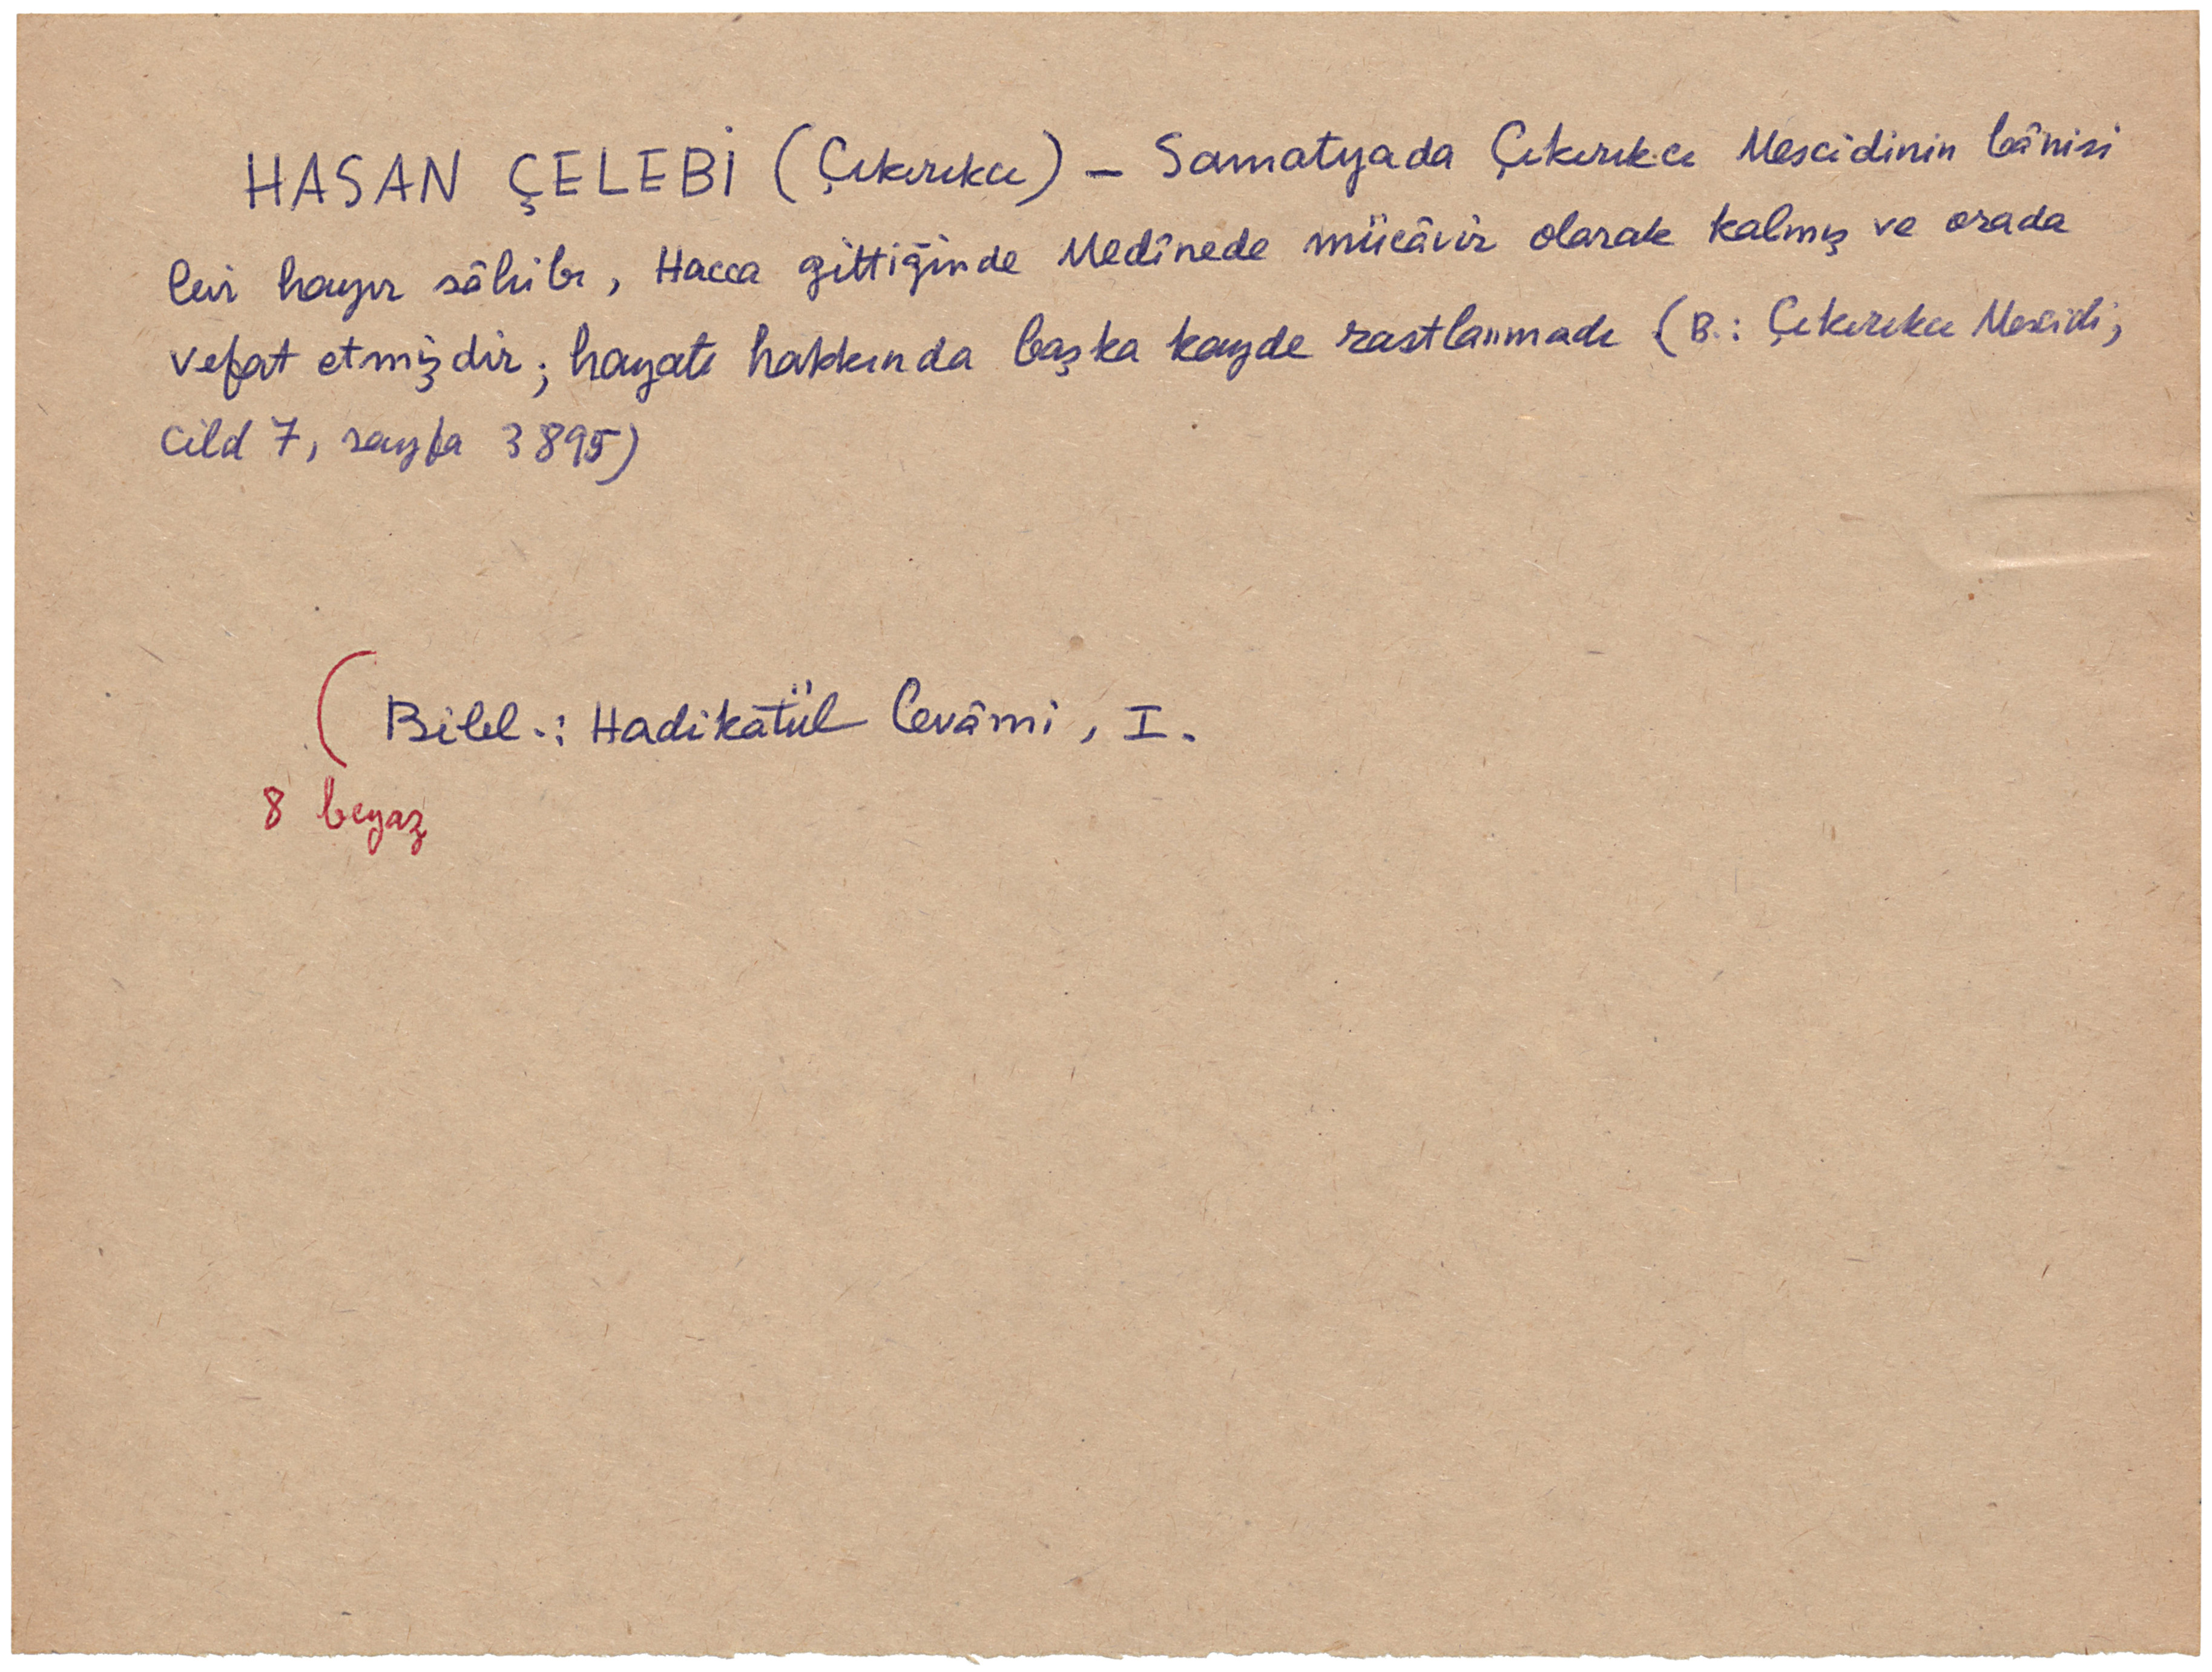 HASAN ÇELEBİ (Çıkırıkcı) — Samatyada Çıkırıkcı Mescidinin bânisi
bir hayır sâhibi, Hacca gittiğinde Medînede mücâvir olarak kalmış ve orada
vefat etmişdir; hayatı hakkında başka kayde rastlanmadı (B.: Çıkırıkcı Mescidi,
cild 7, sayfa 3895)
(Bibl.: Hadikatül Cevâmi, I.
8 beyaz